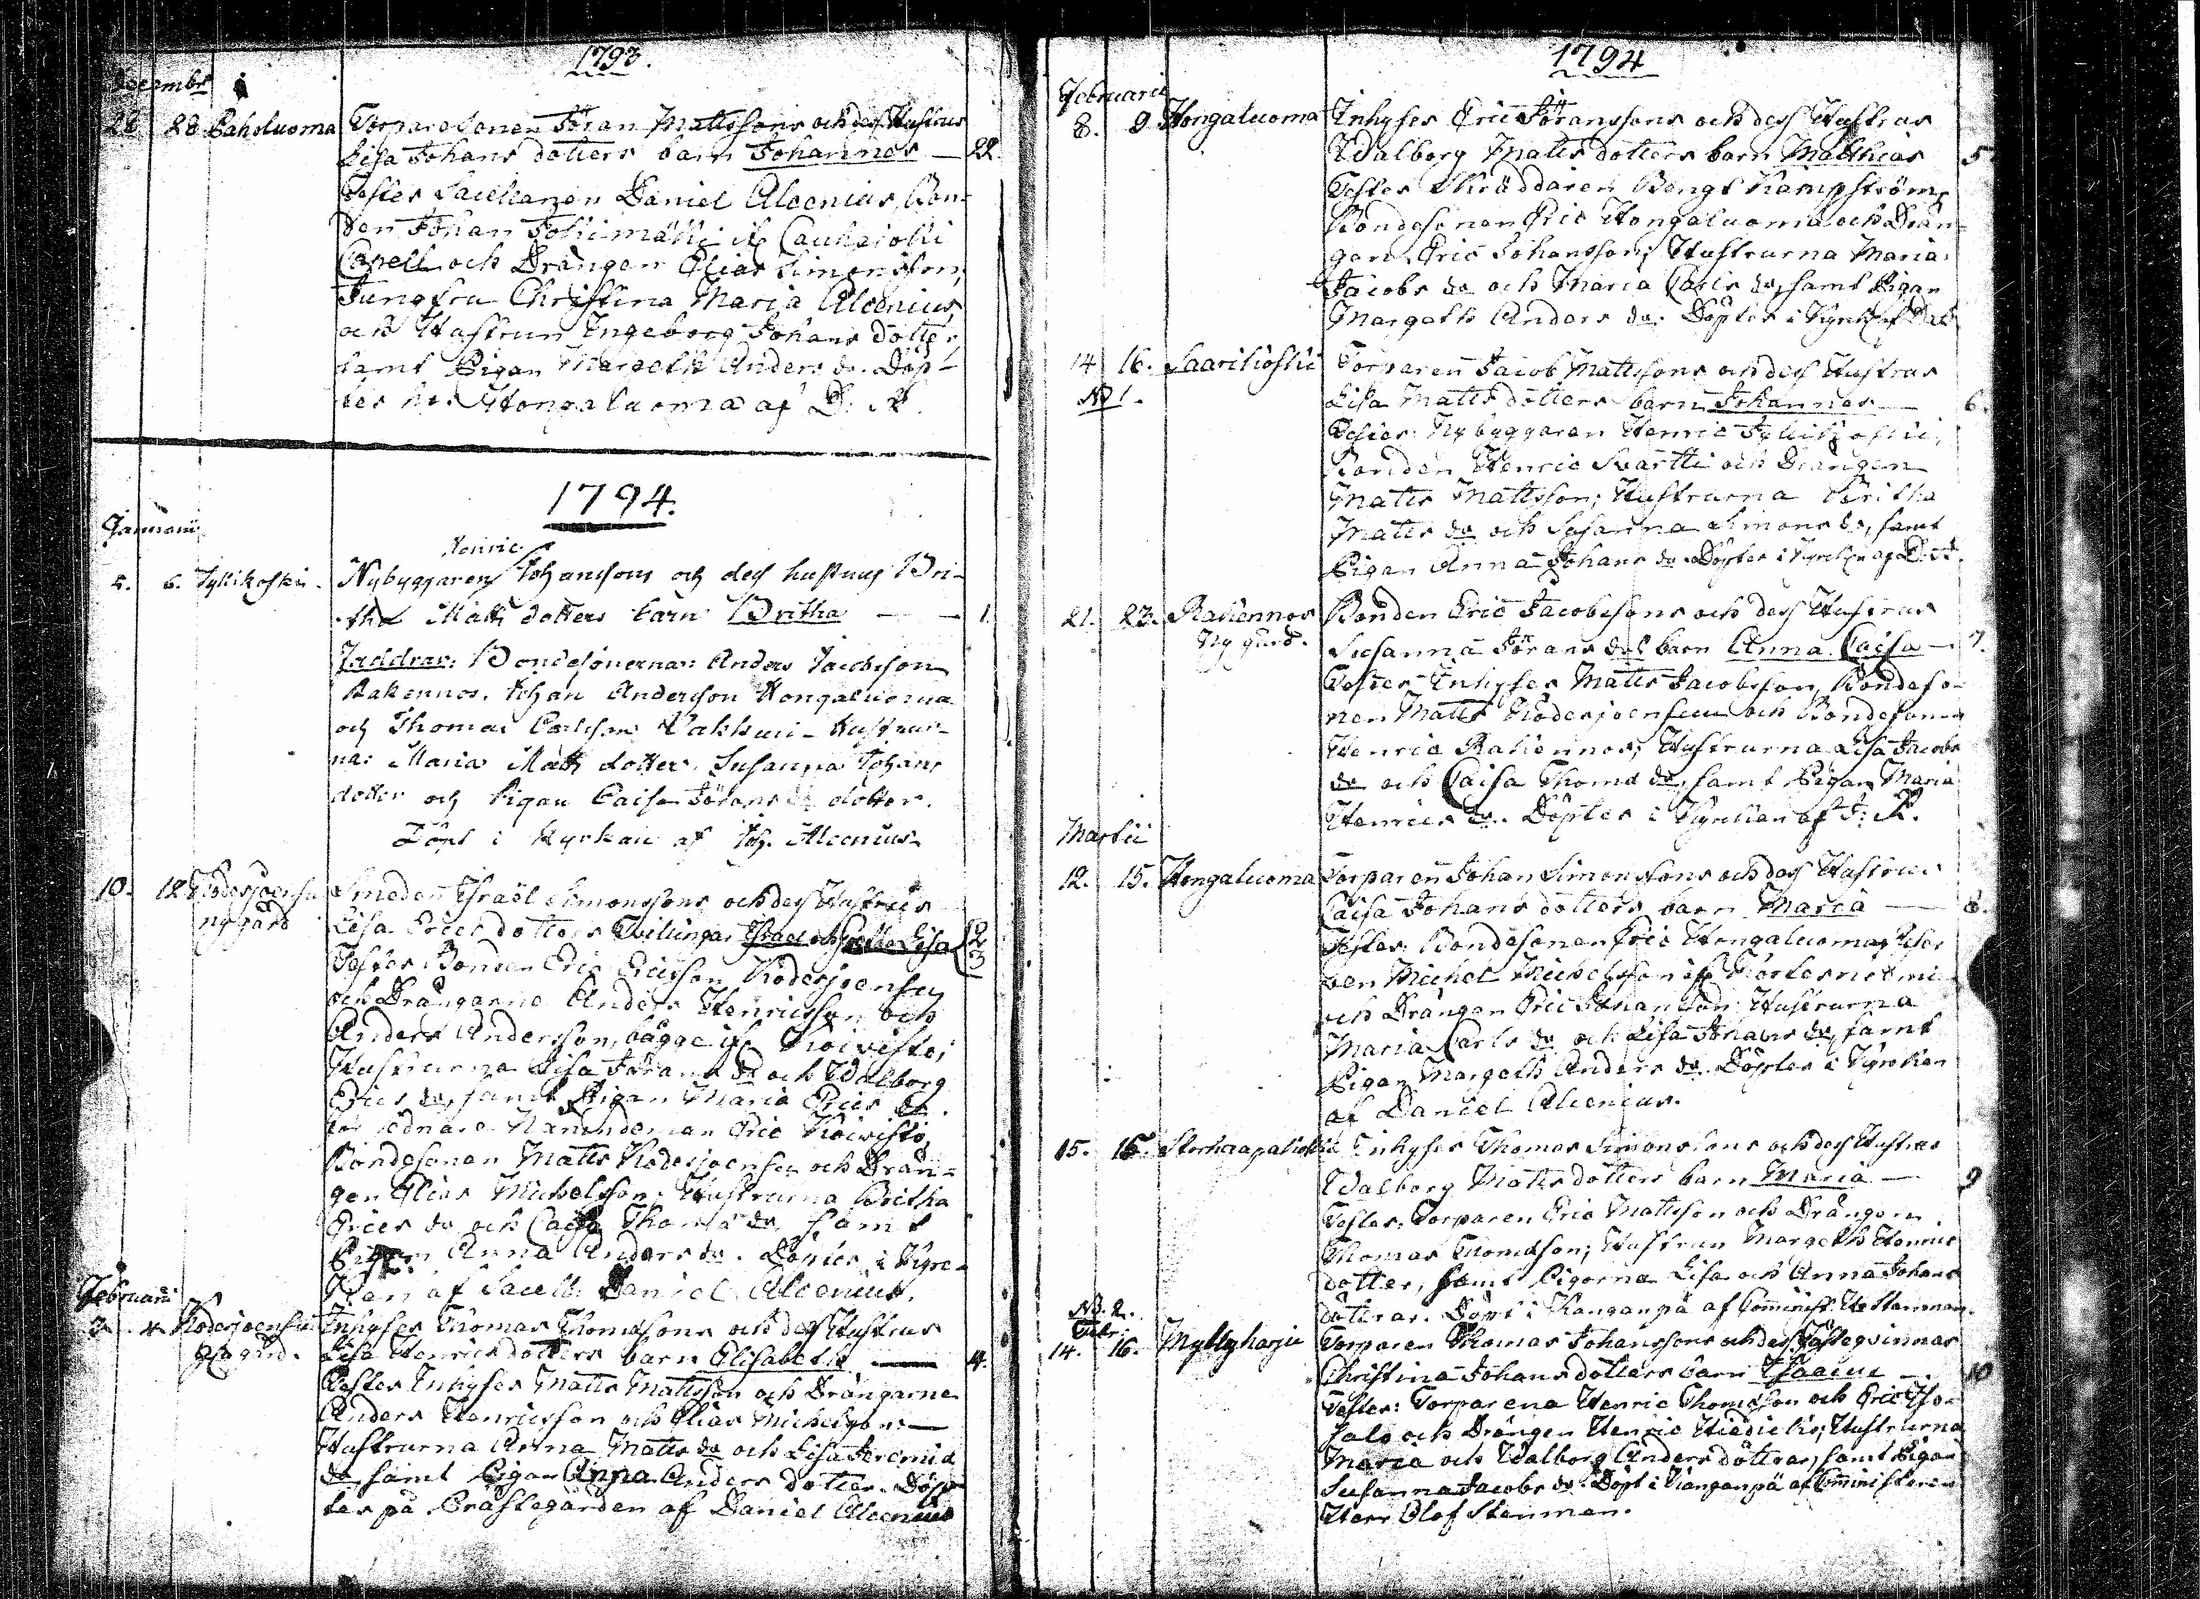 1793.
Decembr
28 28 Paholuoma Torparesonen Jöran Mattssons och dess Hustrus
Lisa Johans dotters barn Johannes — 22.
Testes Sacellanen Daniel Alcenius, Bon-
den Johan Jokimäki if Cauhajoki
Capell och Drängen Elias Simonsson,
Jungfru Christina Maria Alcenius,
och Hustrun Ingeborg Johans dotter,
samt Pigan Margeth Anders dr. Döp-
tes i Hongaluoma af D: A.
1794.
Januarii
Henric
5. 6. Jyllikoski. Nybyggaren Johanssons och dess hustrus Bri-
tha Matts dotters barn Britha — — 1.
Faddrar: Bondesönerna: Anders Jacobsson
Rakennos, Johan Andersson Hongaluoma
och Thomas Carlsson Hustrur-
na: Maria Matts dotter, Susanna Johans
dotter och Pigan Caisa Jörans dotter.
Döpt i Kyrkan af Joh. Alcenius.
10. 12 Kodesjoensu Smeden Israël Simonssons och dess Hustrus
nygård Lisa Erics dotters Tvillingar Israel och Lisa 2 3
Testes Bonden Eric Ericsson Kodesjoensuu
och Drängarne Anders Henricsson och
Anders Andersson, bägge if Koivisto;
Hustrurna Lisa Jörans dr och Walborg
Erics dr, samt Pigan Maria Erics dr.
Nämndeman Eric Koivisto,
Bondesonen Matts Kodesjoensuu och Drän-
gen Elias Michelsson; Hustrurna Britha
Erics dr och Caisa Thomæ dr, samt
Pigan Anna Anders dr. Döptes i Kyr-
kan af Sacell: Daniel Alcenius.
Februarii
3. 4 Kodesjoensuu Inhyses Thomas Thomæsons och dess Hustrus
gård. Lisa Henricsdotters barn Elisabeth — 4.
Testes Inhyses Matts Mattsson och Drängarne
Anders Henricsson och Elias Michelsson: —
Hustrurna Anna Matts dr och Lisa Jeremiæ
dr samt Pigan Anna Anders dotter. Döp-
tes på Prästegården af Daniel Alcenius
1794
Februarii
8. 9 Hongaluoma Inhyses Eric Jöranssons och dess Hustrus
Walborg Matts dotters barn Matthias 5
Testes Skräddaren Bengt Kampström,
Bondesonen Eric Hongaluoma och Drän-
gen Eric Johansson; Hustrurna Maria
Jacobs dr och Maria Carls dr, samt Pigan
Margeth Anders dr. Döptes i Kyrk: af D: A
14 16. Saarikoski Torparen Jacob Mattssons och dess Hustrus
No 1. Lisa Matts dotters barn Johannes — 6.
Testes: Nybyggaren Henric Jyllikoski,
Bonden Henric Svartti och Drängen
Matts Mattsson; Hustrurna Britha
Matts dr och Susanna Simons dr, samt
Pigan Anna Johans dr Döptes i Kyrkan af D: A.
21. 23. Rakennos Bonden Eric Jacobssons och dess Hustrus
Ny gård. Susanna Jörans dr:s barn Anna Caisa — 7.
Testes Inhyses Matts Jacobsson, Bondeso-
nen Matts Kodesjoensuu och Bondesonen
Henric Rakennos; Hustrurna Lisa Jacobs
dr och Caisa Thomæ dr, samt Pigan Maria
Henrics dr. Döptes i Kyrkan af J: R.
Martii
12. 15. Hongaluoma Torparen Johan Simonssons och dess Hustrus
Caisa Johans dotters barn Maria — 8.
Testes: Bondesonen Eric Hongaluoma,
Michel Michelsson if
och Drängen Eric Johansson: Hustrurna
Maria Carls dr och Lisa Johans dr, samt
Pigan Margeth Anders dr. Döptes i Kyrkan
af Daniel Alcenius.
15. 16. Storhaapakoski Inhyses Thomas Simonssons och dess Hustrus
Walborg Matts dotters barn Maria — 9
Testes. Torparen Eric Mattsson och Drängen
Thomas Thomæson; Hustrun Margeth Henrics
dotter, samt Pigorna Lisa och Anna Johans
No. 2. döttrar. Döpt i Kanganpä af Comminist. Hr Stenman.
Febr.
14. 16. Myllyharju Torparen Thomas Johanssons och dess Fästeqvinnas
Christina Johans dotters barn Isaac — 10
Testes: Torparena Henric Thomæson och Eric Iso-
salo och Drängen Henric Hiedicko; Hustrurna
Maria och Walborg Anders döttrar, samt Pigan
Susanna Jacobs dr. Döpt i Kanganpä af Comministeren
Herr Olof Stenman.